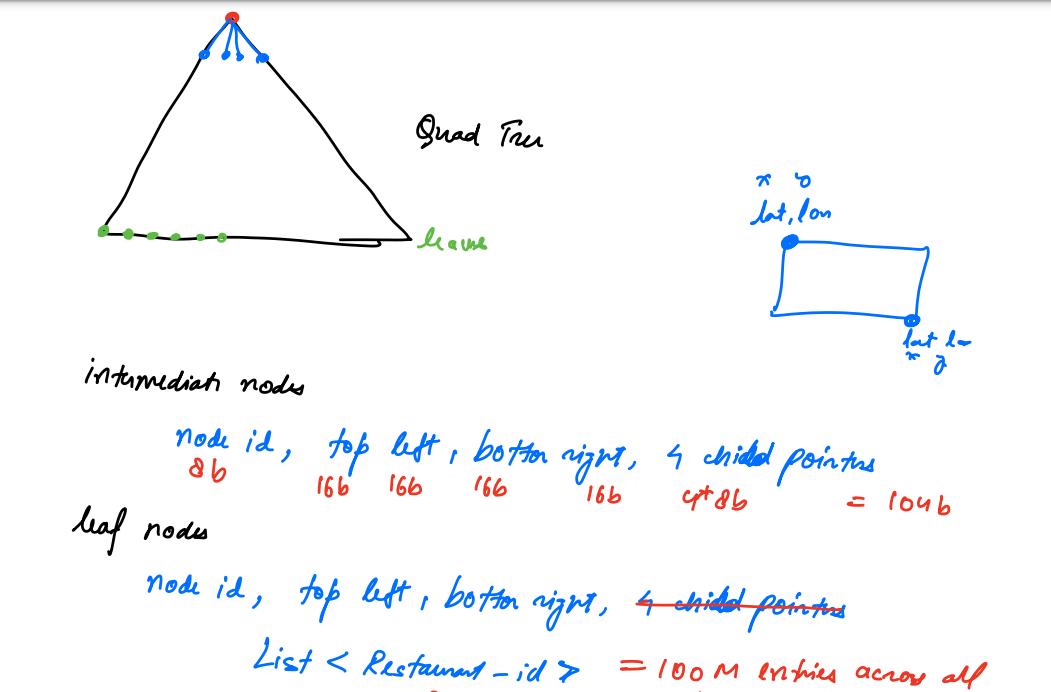 Quad Tree
x y
lat, lon
leaves
lat lon
x y
intermediate nodes
node id, top left, bottom right, 4 child pointers
8b 16b 16b 16b 16b 4*8b = 104b
leaf nodes
node id, top left, bottom right, 4 child pointers
List < Restaurant_id > = 100M entries across all